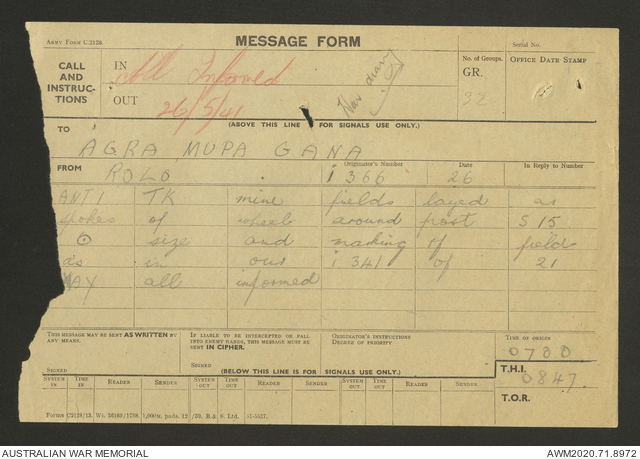 ARMY FORM C2128.
MESSAGE FORM
Serial No.
CALL AND INSTRUCTIONS
IN
All Informed
OUT
26/5/41
War diary
No. of Groups.
GR.
32
OFFICE DATE STAMP
(ABOVE THIS LINE IS FOR SIGNALS USE ONLY.)
TO
AGRA MUPA GANA
FROM
ROLO
Originator's Number
i 366
Date
26
In Reply to Number
ANTI TK mine fields layed as
spokes of wheel around post S 15
size and marking of field
as in our i 341 of 21
MAY all informed
THIS MESSAGE MAY BE SENT AS WRITTEN BY ANY MEANS.
IF LIABLE TO BE INTERCEPTED OR FALL INTO ENEMY HANDS, THIS MESSAGE MUST BE SENT IN CIPHER.
ORIGINATOR'S INSTRUCTIONS
DEGREE OF PRIORITY
TIME OF ORIGIN
0700
SIGNED
SIGNED
(BELOW THIS LINE IS FOR SIGNALS USE ONLY.)
T.H.I.
0847.
SYSTEM IN
TIME IN
READER
SENDER
SYSTEM OUT
TIME OUT
READER
SENDER
SYSTEM OUT
TIME OUT
READER
SENDER
T.O.R.
AUSTRALIAN WAR MEMORIAL
AWM2020.71.8972